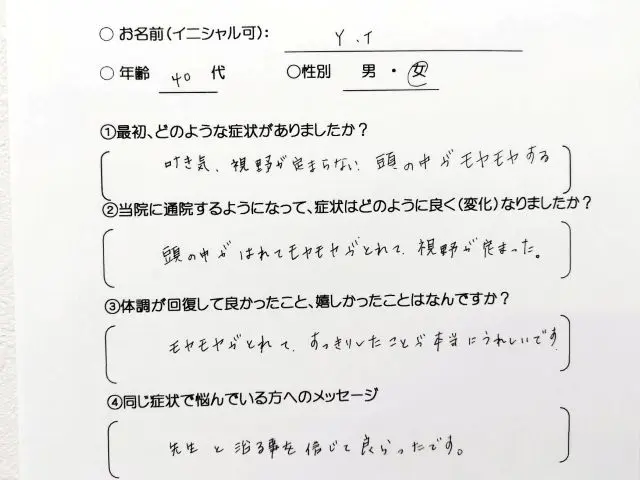 ○ お名前(イニシャル可): Y.T
○ 年齢 40 代 ○性別 男 ・ 女
①最初、どのような症状がありましたか?
吐き気、視野が定まらない、頭の中がモヤモヤする
②当院に通院するようになって、症状はどのように良く(変化)なりましたか?
頭の中がはれてモヤモヤがとれて、視野が定まった。
③体調が回復して良かったこと、嬉しかったことはなんですか?
モヤモヤがとれて、すっきりしたことが本当にうれしいです
④同じ症状で悩んでいる方へのメッセージ
先生と治る事を信じて良かったです。